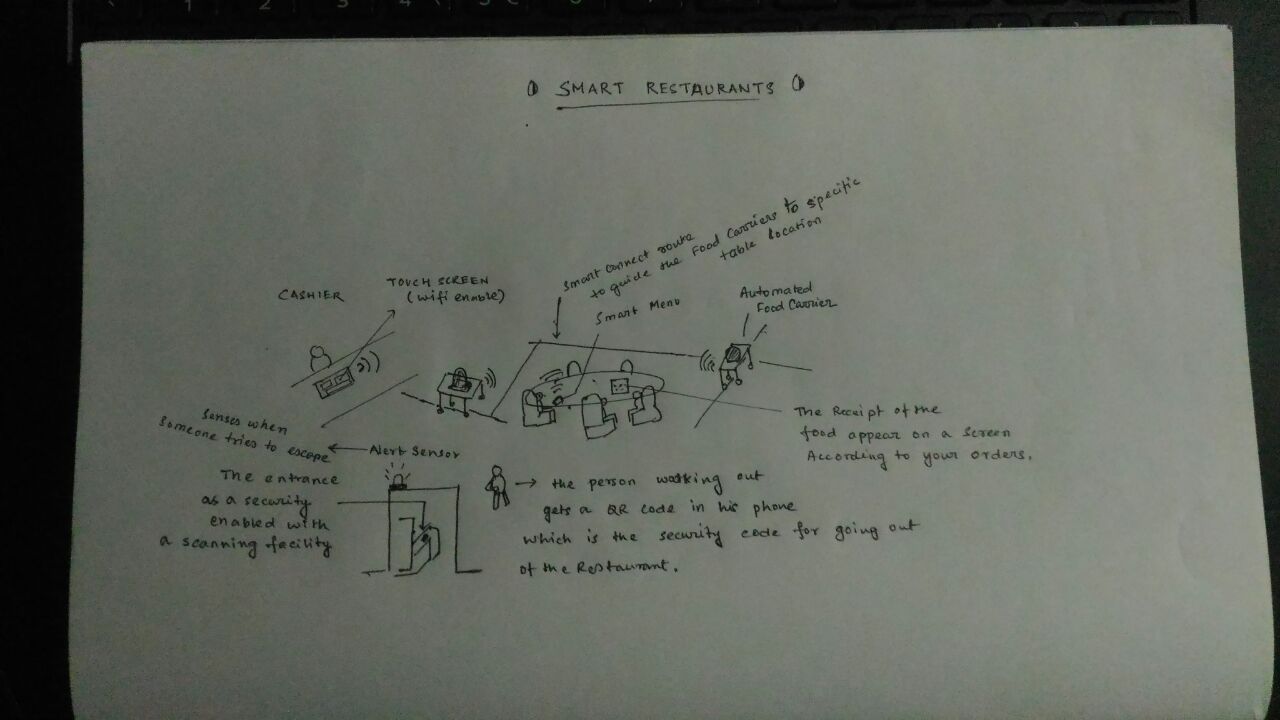 SMART RESTAURANTS
Smart connect route
to guide the Food Carriers to specific
table location
CASHIER
TOUCH SCREEN
(wifi enable)
Smart Menu
Automated
Food Carrier
The Receipt of the
food appear on a screen
According to your orders.
Senses when
someone tries to escape
Alert Sensor
The entrance
as a security
enabled with
a scanning facility
the person walking out
gets a QR code in his phone
which is the security code for going out
of the Restaurant.
1 2 3 4 5